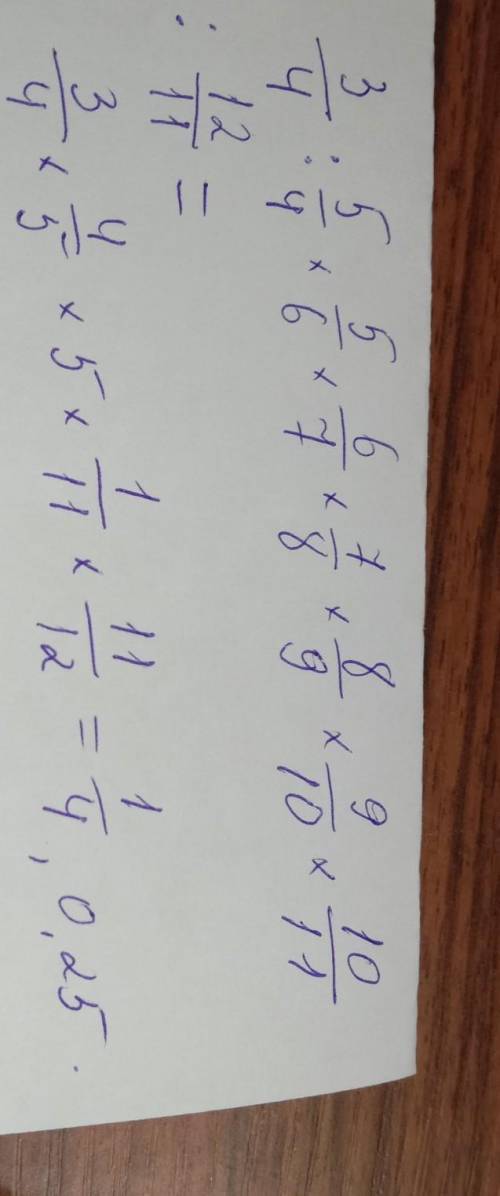 3/4 : 5/4 × 5/6 × 6/7 × 7/8 × 8/9 × 9/10 × 10/11
: 12/11 =
3/4 × 4/5 × 5 × 1/11 × 11/12 = 1/4, 0,25.